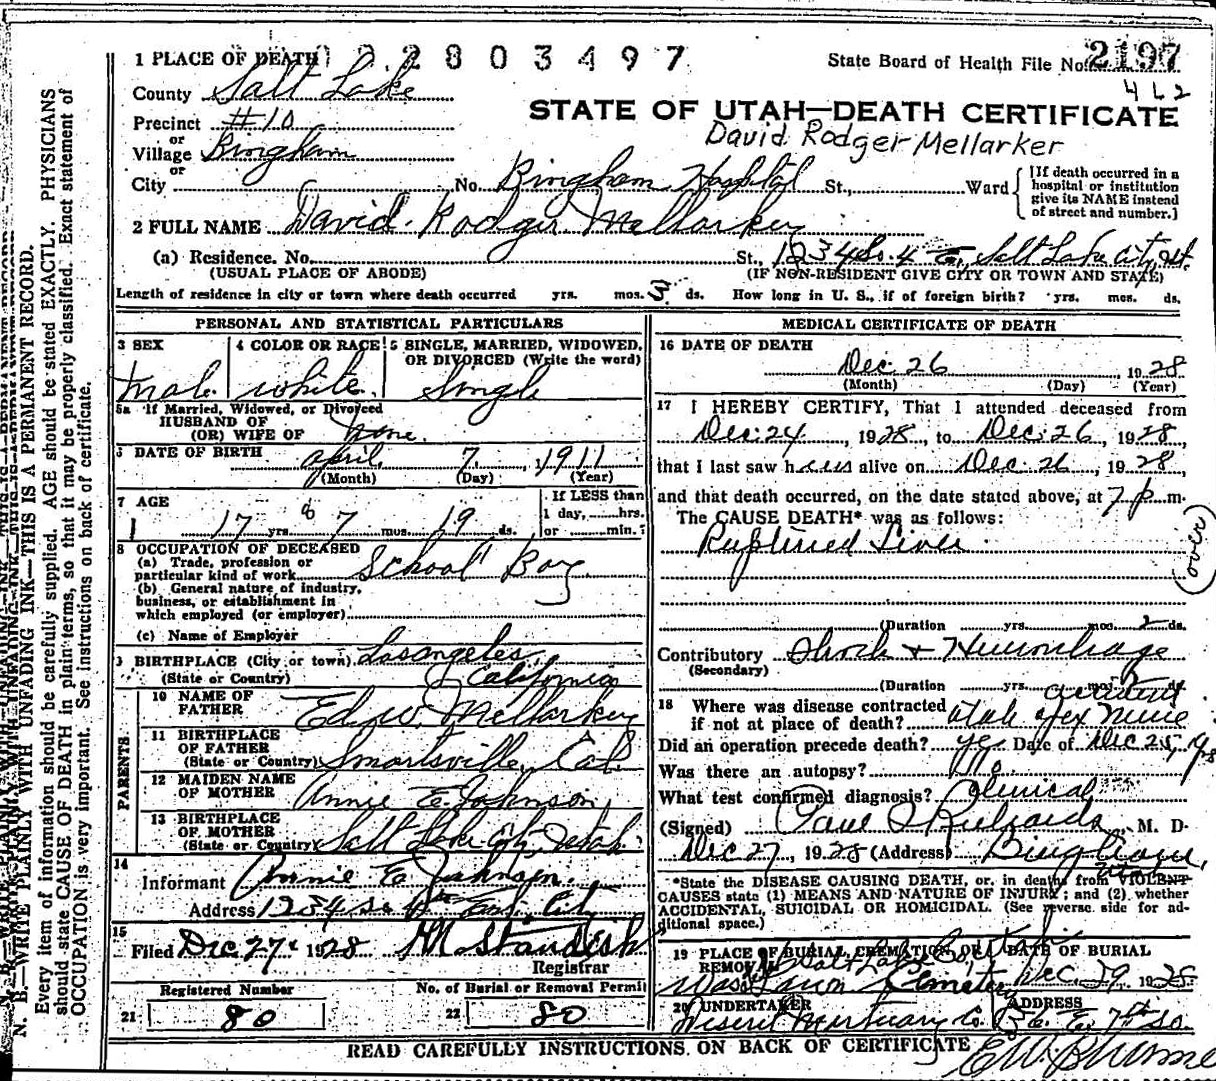 1 PLACE OF DEATH 2 8 0 3 4 9 7
State Board of Health File No. 2197
462
County Salt Lake
STATE OF UTAH—DEATH CERTIFICATE
Precinct #10
David Rodger Mellarker
or
Village Bingham
or
City No. Bingham Hospital St., Ward
[If death occurred in a hospital or institution give its NAME instead of street and number.]
2 FULL NAME David Rodger Mellarkey
(a) Residence. No. St., 1234 So. 4 E., Salt Lake City, Ut.
(USUAL PLACE OF ABODE) (IF NON-RESIDENT GIVE CITY OR TOWN AND STATE)
Length of residence in city or town where death occurred yrs. mos. 3 ds. How long in U. S., if of foreign birth? yrs. mos. ds.
PERSONAL AND STATISTICAL PARTICULARS
3 SEX 4 COLOR OR RACE 5 SINGLE, MARRIED, WIDOWED,
OR DIVORCED (Write the word)
male white Single
5a If Married, Widowed, or Divorced
HUSBAND OF
(OR) WIFE OF None.
6 DATE OF BIRTH April 7 1911
(Month) (Day) (Year)
7 AGE If LESS than
1 day, hrs.
17 yrs. 8 7 mos. 19 ds. or min.?
8 OCCUPATION OF DECEASED
(a) Trade, profession or
particular kind of work School Boy
(b) General nature of industry,
business, or establishment in
which employed (or employer)
(c) Name of Employer
9 BIRTHPLACE (City or town) Los angeles,
(State or Country) California
PARENTS
10 NAME OF
FATHER Ed. W. Mellarkey
11 BIRTHPLACE
OF FATHER
(State or Country) Smartsville, Cal.
12 MAIDEN NAME
OF MOTHER Annie E. Johnson,
13 BIRTHPLACE
OF MOTHER
(State or Country) Salt Lake City, Utah.
14
Informant Annie E. Johnson.
Address 1234 So. 4th East, City
15
Filed Dec 27, 1928 H M Standish
Registrar
Registered Number No. of Burial or Removal Permit
21 80 22 80
MEDICAL CERTIFICATE OF DEATH
16 DATE OF DEATH
Dec 26, 1928
(Month) (Day) (Year)
17 I HEREBY CERTIFY, That I attended deceased from
Dec. 24, 1928, to Dec. 26, 1928,
that I last saw him alive on Dec 26, 1928,
and that death occurred, on the date stated above, at 7 p.m.
The CAUSE DEATH* was as follows:
Ruptured Liver
(over)
(Duration yrs. mos. 2 ds.
Contributory Shock & Hemorrhage
(Secondary)
(Duration yrs. mos. ds.
accident
18 Where was disease contracted
if not at place of death? Utah Apex Mine
Did an operation precede death? yes Date of Dec 25,
Was there an autopsy? No.
What test confirmed diagnosis? Clinical
(Signed) Paul S Richards, M. D.
Dec 27, 1928 (Address) Bingham,
Utah
*State the DISEASE CAUSING DEATH, or, in deaths from VIOLENT
CAUSES state (1) MEANS AND NATURE OF INJURY; and (2) whether
ACCIDENTAL, SUICIDAL OR HOMICIDAL. (See reverse side for ad-
ditional space.)
19 PLACE OF BURIAL, CREMATION OR REMOVAL DATE OF BURIAL
Salt Lake City
Cemetery Dec. 29 1928
20 UNDERTAKER ADDRESS
Deseret Mortuary Co. E. 7th So.
READ CAREFULLY INSTRUCTIONS ON BACK OF CERTIFICATE
N. B.—WRITE PLAINLY WITH UNFADING INK—THIS IS A PERMANENT RECORD.
Every item of information should be carefully supplied. AGE should be stated EXACTLY. PHYSICIANS
should state CAUSE OF DEATH in plain terms, so that it may be properly classified. Exact statement of
OCCUPATION is very important. See instructions on back of certificate.